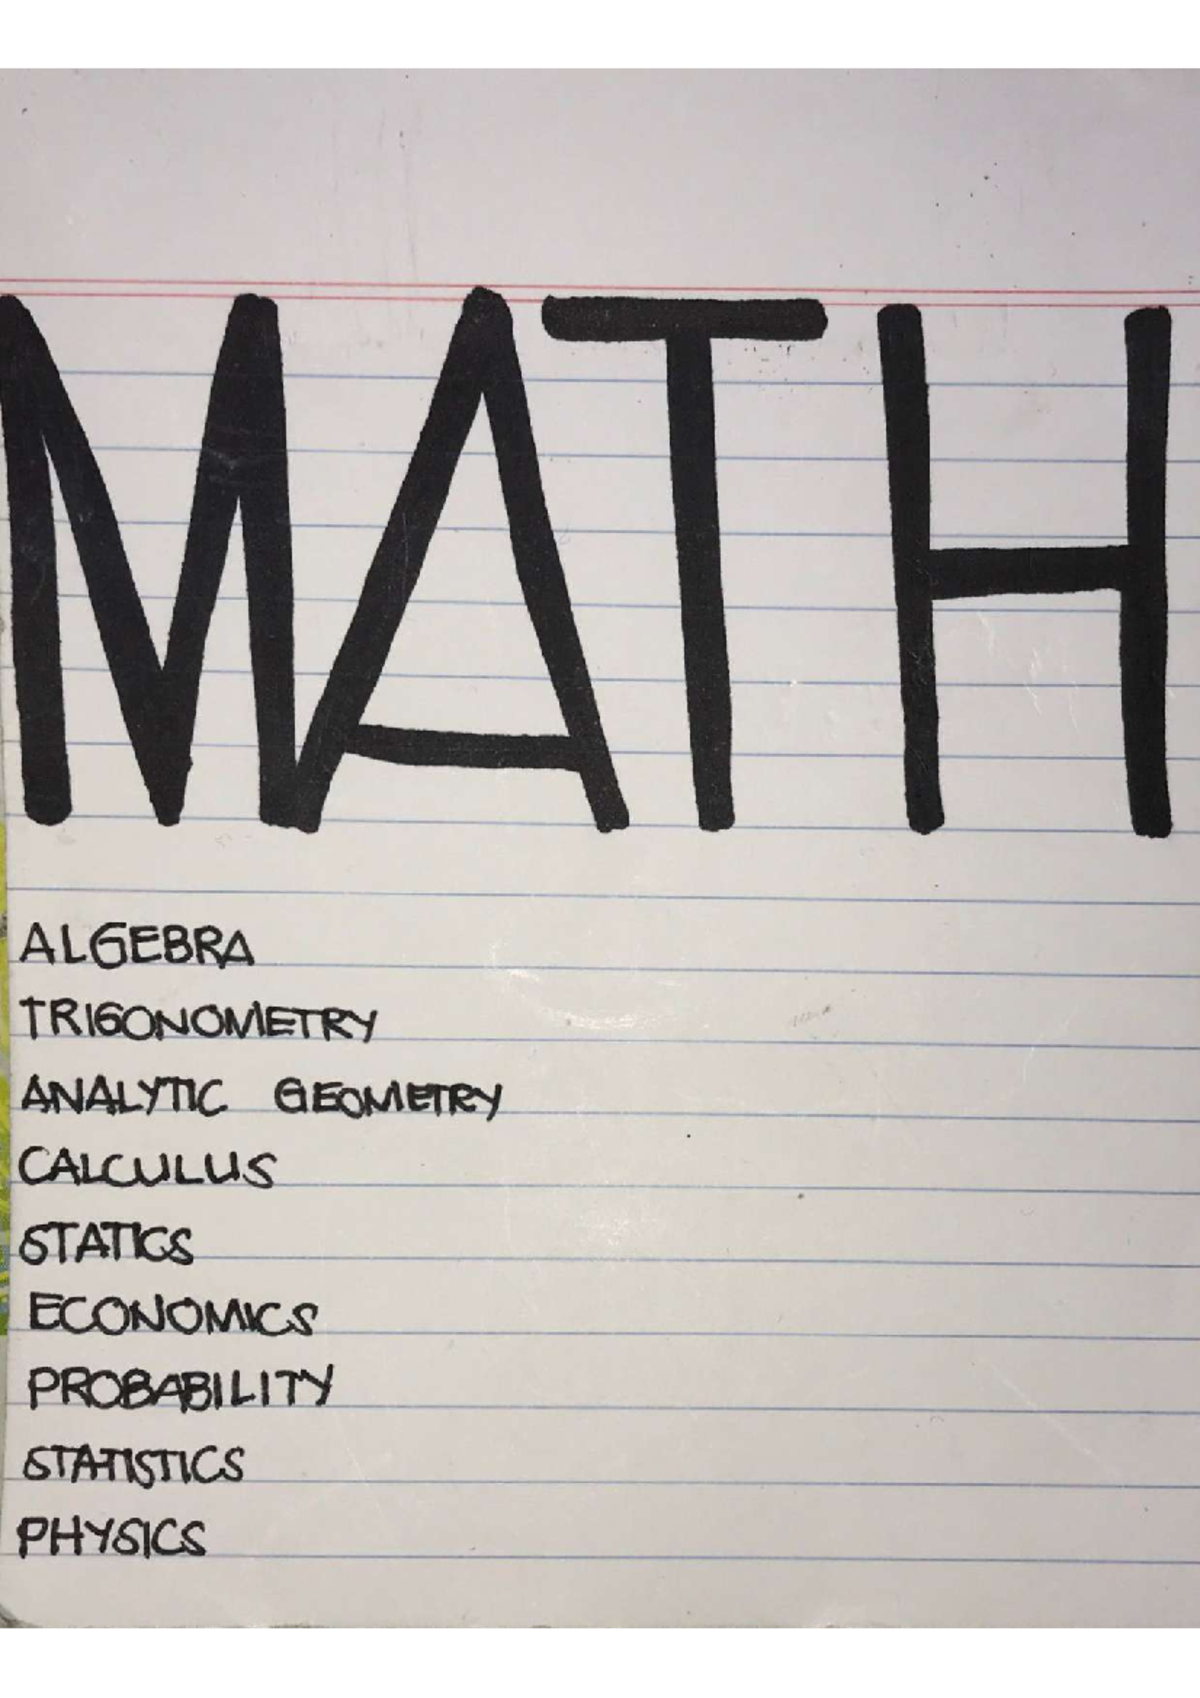 MATH
ALGEBRA
TRIGONOMETRY
ANALYTIC GEOMETRY
CALCULUS
STATICS
ECONOMICS
PROBABILITY
STATISTICS
PHYSICS